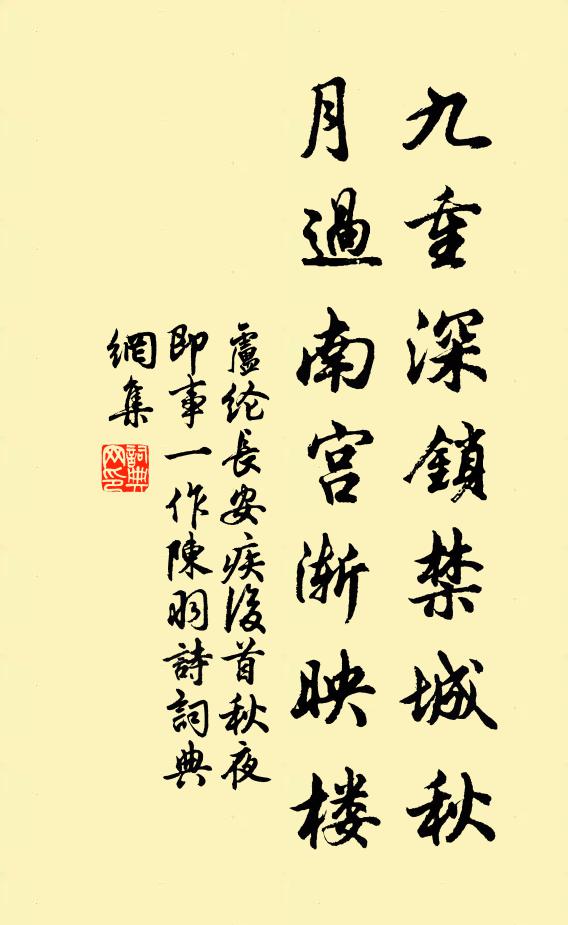 九重深鎖禁城秋
月過南宫渐映楼
盧纶長安疾後首秋夜
即事一作陳羽詩詞典
網集
詞典
网印